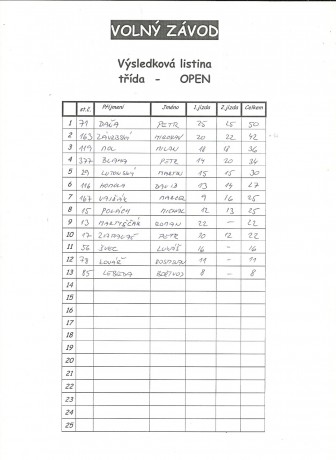 VOLNÝ ZÁVOD
Výsledková listina
třída - OPEN
st.č. Příjmení Jméno 1.jízda 2.jízda Celkem
1 79 PETR 25 25 50
2 163 ZÁVORSKÝ MIROSLAV 20 22 42
3 119 MOL MILAN 18 18 36
4 377 BLAHA PETR 14 20 34
5 29 MARTIN 15 15 30
6 116 DAVID 13 14 27
7 167 9 16 25
8 15 MICHAL 12 13 25
9 13 ROMAN 22 - 22
10 17 PETR 10 12 22
11 56 ŠVEC LUKÁŠ 16 - 16
12 78 KOVÁŘ 11 - 11
13 85 LEBEDA BOŘIVOJ 8 - 8
14
15
16
17
18
19
20
21
22
23
24
25